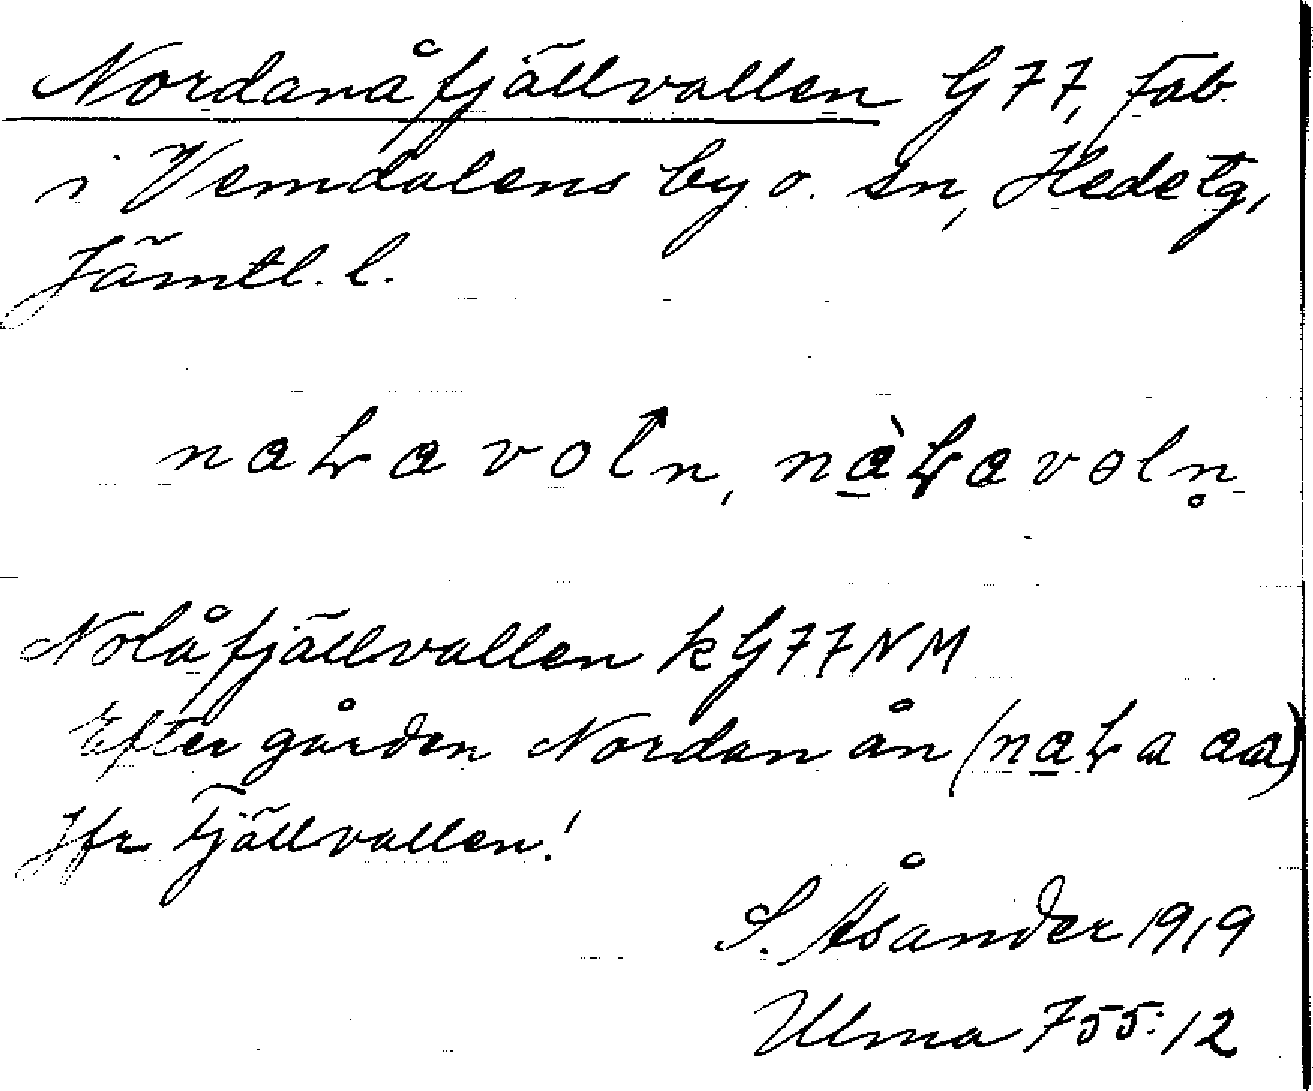 Nordanåfjällvallen G77, fäb.
i Vemdalens by o. sn, Hede tg,
Jämtl. l.
Nolåfjällvallen k G77NM
Efter gården Nordan ån
Jfr Fjällvallen!
S. Åsander 1919
Ulma 755:12